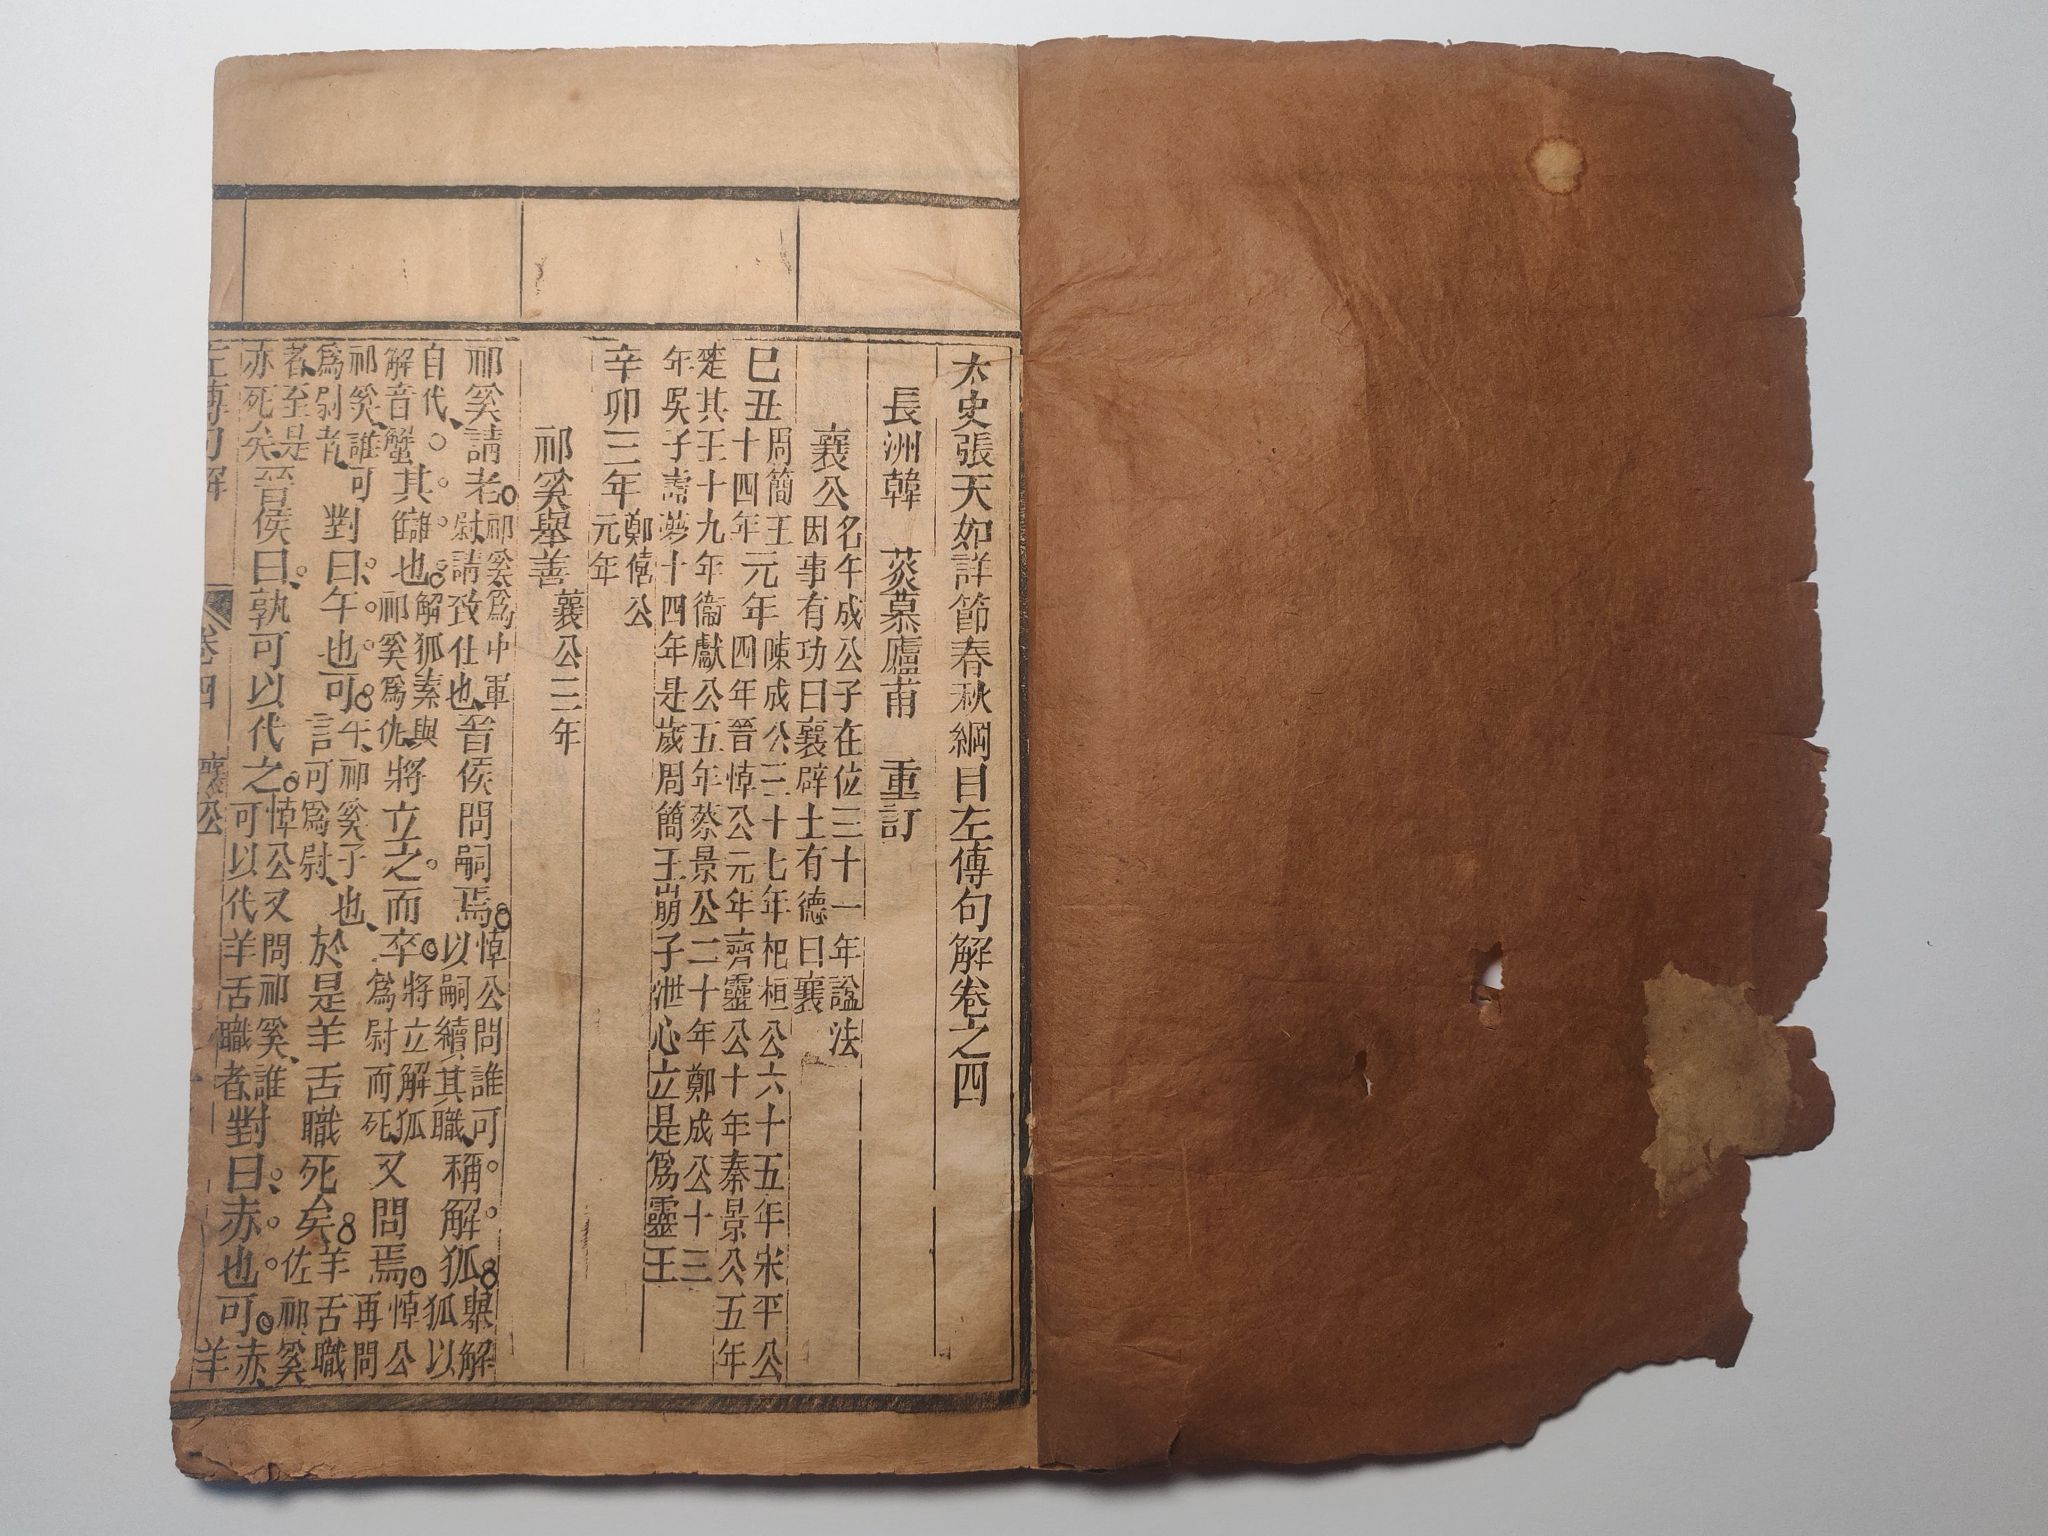 太史張天如詳節春秋綱目左傳句解卷之四
長洲韓 菼慕廬甫 重訂
襄公 名午成公子在位三十一年諡法
因事有功曰襄辟土有德曰襄
巳丑 周簡王元年陳成公二十七年杞桓公六十五年宋平公
十四年四年晉悼公元年齊靈公十年秦景公五年
楚其王十九年衞獻公五年蔡景公二十年鄭成公十三
年吳子壽夢十四年是歲周簡王崩子泄心立是爲靈王
辛卯三年 鄭僖公元年
祁奚舉善 襄公三年
祁奚請老。祁奚爲中軍尉、請致仕也、晉侯問嗣焉。悼公問誰可以嗣續其職、稱解狐。舉解狐以
自代、解音蟹其讎也。解狐素與祁奚爲仇、將立之而卒。將立解狐爲尉而死、又問焉。悼公再問
祁奚、誰可爲尉者、對曰、午也可。午、祁奚子也、言可爲尉、於是羊舌職死矣。羊舌職佐祁奚
者、至是亦死矣、晉侯曰、孰可以代之。悼公又問祁奚、誰可以代羊舌職者、對曰、赤也可。赤、羊
左傳句解 卷四 襄公 一